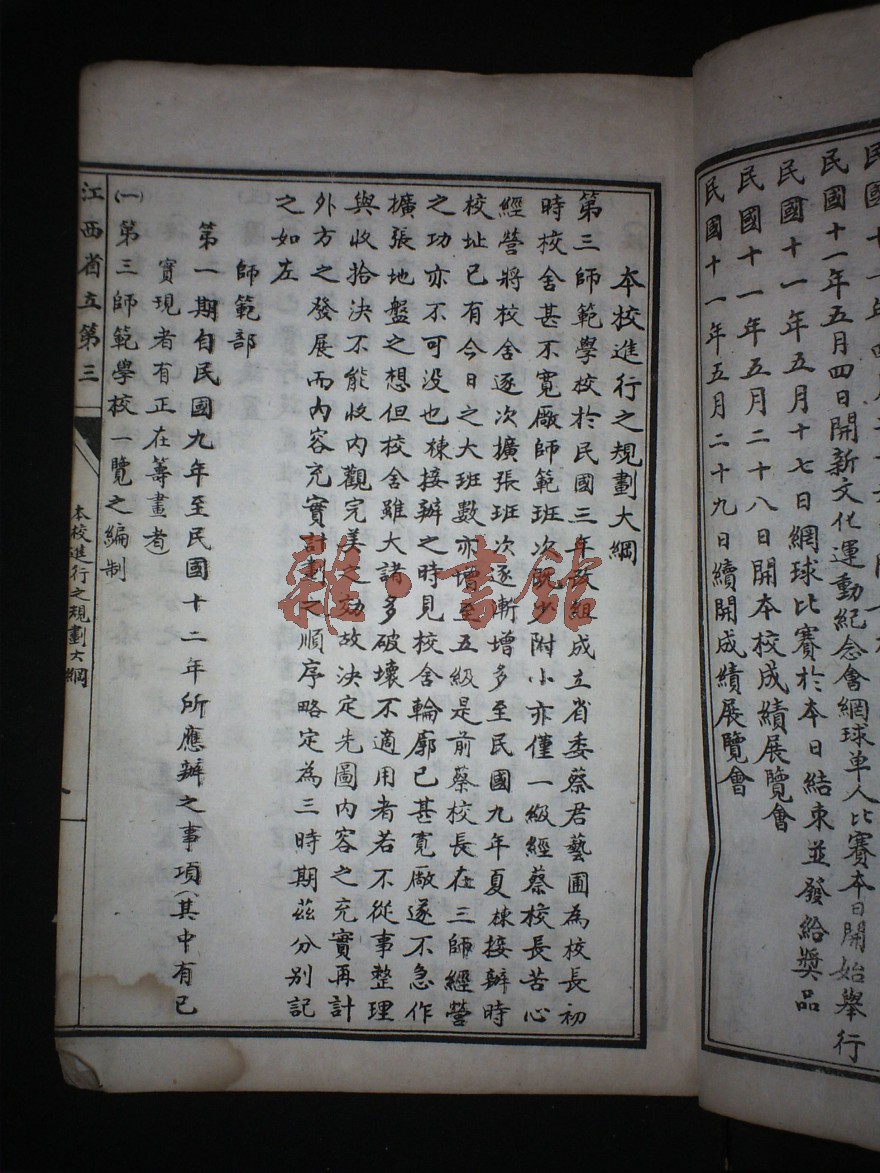 民國十一年五月四日開新文化運動紀念會網球單人比賽本日開始舉行
民國十一年五月十七日網球比賽於本日結束並發給獎品
民國十一年五月二十八日開本校成績展覽會
民國十一年五月二十九日續開成績展覽會
本校進行之規劃大綱
第三師範學校於民國三年改組成立省委蔡君藝圃為校長初
時校舍甚不寬廠師範班次既少附小亦僅一級經蔡校長苦心
經營將校舍逐次擴張班次逐漸增多至民國九年夏棟接辦時
校址已有今日之大班數亦增至五級是前蔡校長在三師經營
之功亦不可没也棟接辦之時見校舍輪廓已甚寬敞遂不急作
擴張地盤之想但校舍雖大諸多破壞不適用者若不從事整理
與收拾決不能收內觀完美之効故決定先圖內容之充實再計
外方之發展而內容充實計劃之順序略定為三時期茲分别記
之如左
師範部
第一期自民國九年至民國十二年所應辦之事項(其中有已
實現者有正在籌畫者)
(一)第三師範學校一覽之編制
江西省立第三
本校進行之規劃大綱
雜·書館